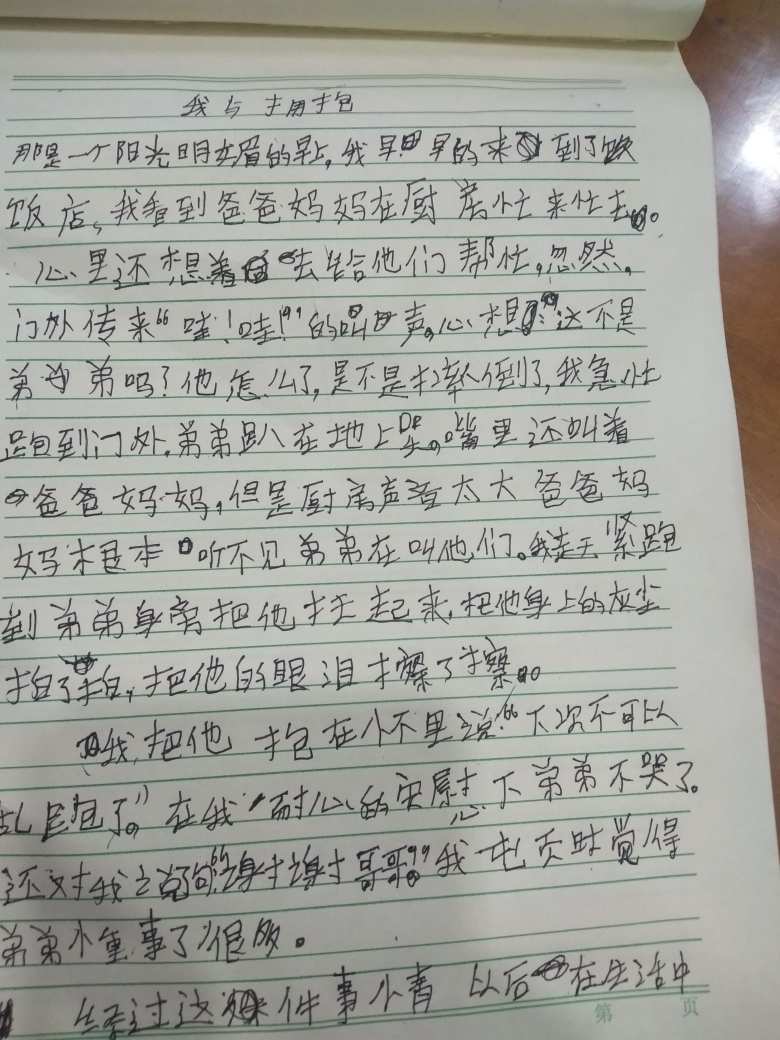 我与拥抱
那是一个阳光明媚的早上,我早早的来到了
饭店,我看到爸爸妈妈在厨房忙来忙去。
心里还想着去给他们帮忙,忽然,
门外传来“哇!哇!”的叫声,心想:“这不是
弟弟吗?他怎么了,是不是摔倒了,我急忙
跑到门外,弟弟趴在地上哭。嘴里还叫着
爸爸妈妈,但是厨房声音太大爸爸妈
妈根本听不见弟弟在叫他们。我赶紧跑
到弟弟身旁把他扶起来,把他身上的灰尘
拍了拍,把他的眼泪擦了擦。
我把他抱在怀里说:“下次不可以
乱跑了。”在我耐心的安慰下弟弟不哭了。
还对我说了句“谢谢哥哥”我也顿时觉得
弟弟懂事了很多。
经过这件事情以后在生活中
第 页